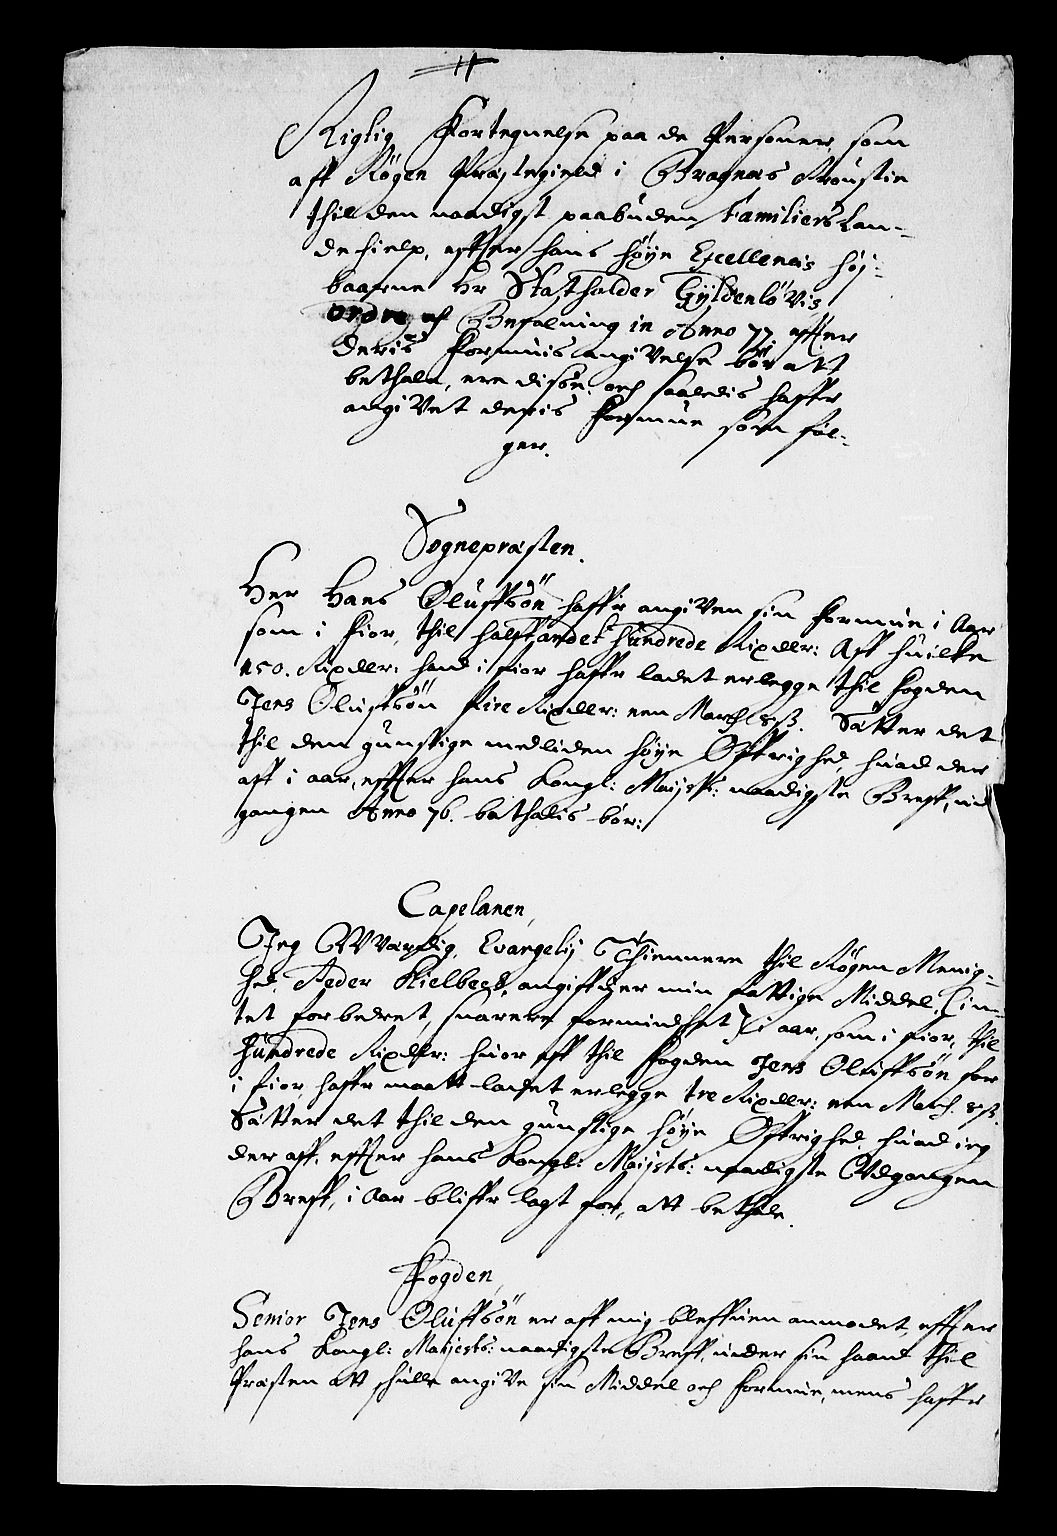 Rigtig Fortegnelse paa de Personer, som
aff Røgen Præstegield i Bragnæs Proustie
thil den naadigst paabuden Familiers Lan-
de hielp, effter hans høye Excellences høj-
baarne Hr Stathalder Gÿldenlöves
ordre och Befalning in Anno 77. effter
deris Formuis angivelse bör att
bethale, ere disse, och saaledis haffr
angivet deris Formue som føl-
ger.
Sognepræsten.
Her Hans Oluffsön haffr angiven sin Formue i Aar
som i Fior, thil halfftandet hundrede Rixdlr: Aff huilke
150. Rixdlr: hand i fior haffr ladet erlegge thil Fogden
Jens Oluffsön fire Rixdlr: een March 8 ß. Sætter det
thil den gunstige medliden høye Øffrighed, huad der
aff i aar, effter hans Kongl: Maijests: naadigste Breff, ud
gangen Anno 76. bethalis bör:
Capelanen,
Jeg WWærdig, Evangelij Thiennere thil Røgen Menig-
hed, Peder Kielbeck, angiffuer min fattige Middel, (in-
tet forbedret, snarere formindsket) i aar, som i fior, thil
hundrede Rixdlr: huor aff thil Fogden Jens Oluffsön for
i fior, haffr maatt ladet erlegge tre Rixdlr: een March. 8 ß.
Sætter det thil den gunstige høye Øffrighed, huad ieg
der aff, effter hans Kongl: Maijests: naadigste Udgangen
Breff, i Aar bliffr lagt for, att bethale.
Fogden,
Senior Jens Oluffsön er aff mig bleffuen anmodet, effter
hans Kongl: Maijests: naadigste Breff, under sin haand thil
Præsten att skulle angive sin Middel och Formue, mens haffr